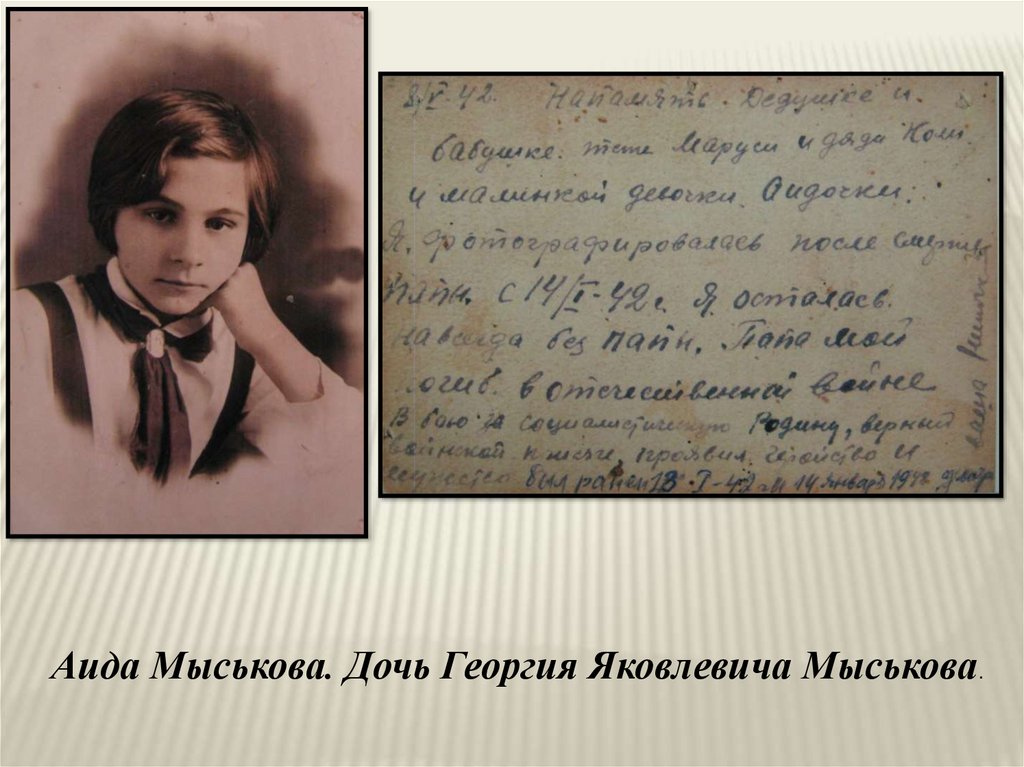 8/V-42. Напамять. Дедушке и
бабушке. тете Маруси и дяди Коли
и малинкой девочки. Аидочки:
Я. фотографировалась после смерти
папы. с 14/I-42 г. Я осталась.
навсегда без папы. Папа мой
погиб. в отечественной войне
В бою за социалистическую Родину, верный
воинской присяге, проявил геройство и
мужество был ранен 13·I-42 г и 14 января 1942
ваша
Аида Муськова. Дочь Георгия Яковлевича Муськова.